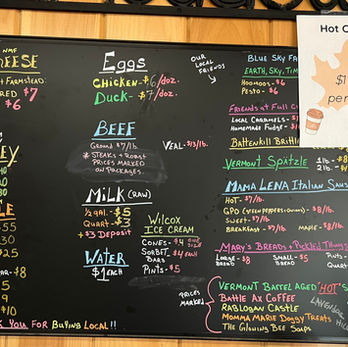 NMF
EESE
+ FARMSTEAD:
RED $7
$6
EY
LE
-8
$9
$10
Eggs
CHICKEN- $6/DOZ.
DUCK- $7/DOZ.
BEEF
GROUND $7/lb.
* STEAKS + ROAST
PRICES MARKED
ON PACKAGES.
VEAL- $13/lb.
MILK (RAW)
1/2 GAL. - $5
QUART - $3
+$3 DEPOSIT
WATER
$1 EACH
WILCOX
ICE CREAM
CONES- $4
SORBET
BARS
PINTS- $5
OUR
LOCAL
FRIENDS
BLUE SKY FA
EARTH, SKY, TIM
HOOMOOS - $6
PESTO - $6
FRIENDS AT FULL C
LOCAL CARAMELS
HOMEMADE FUDGE
BATTENKILL BRITTL
VERMONT SPÄTZLE
1 lb - $8
2 lb.
MAMA LENA ITALIAN SAUS
HOT- $7/lb.
GPO (GREEN PEPPERS + ONIONS) - $8/lb.
SWEET- $7/lb.
BREAKFAST - $7/lb.
MAPLE - $8/lb.
MARY'S BREADS + PICKLED THINGS
LARGE
BREAD
SMALL
BREAD
PINT-
QUART-
PRICES
MARKED
VERMONT BARREL AGED "HOT" S
BATTLE AX COFFEE
RABLOGAN CASTLE
MOMMA MARIE DOGGY TREATS
THE GLOWING BEE SOAPS
LAVENDER
HILL
K YOU FOR BUYING LOCAL!!
Hot C
$1
per